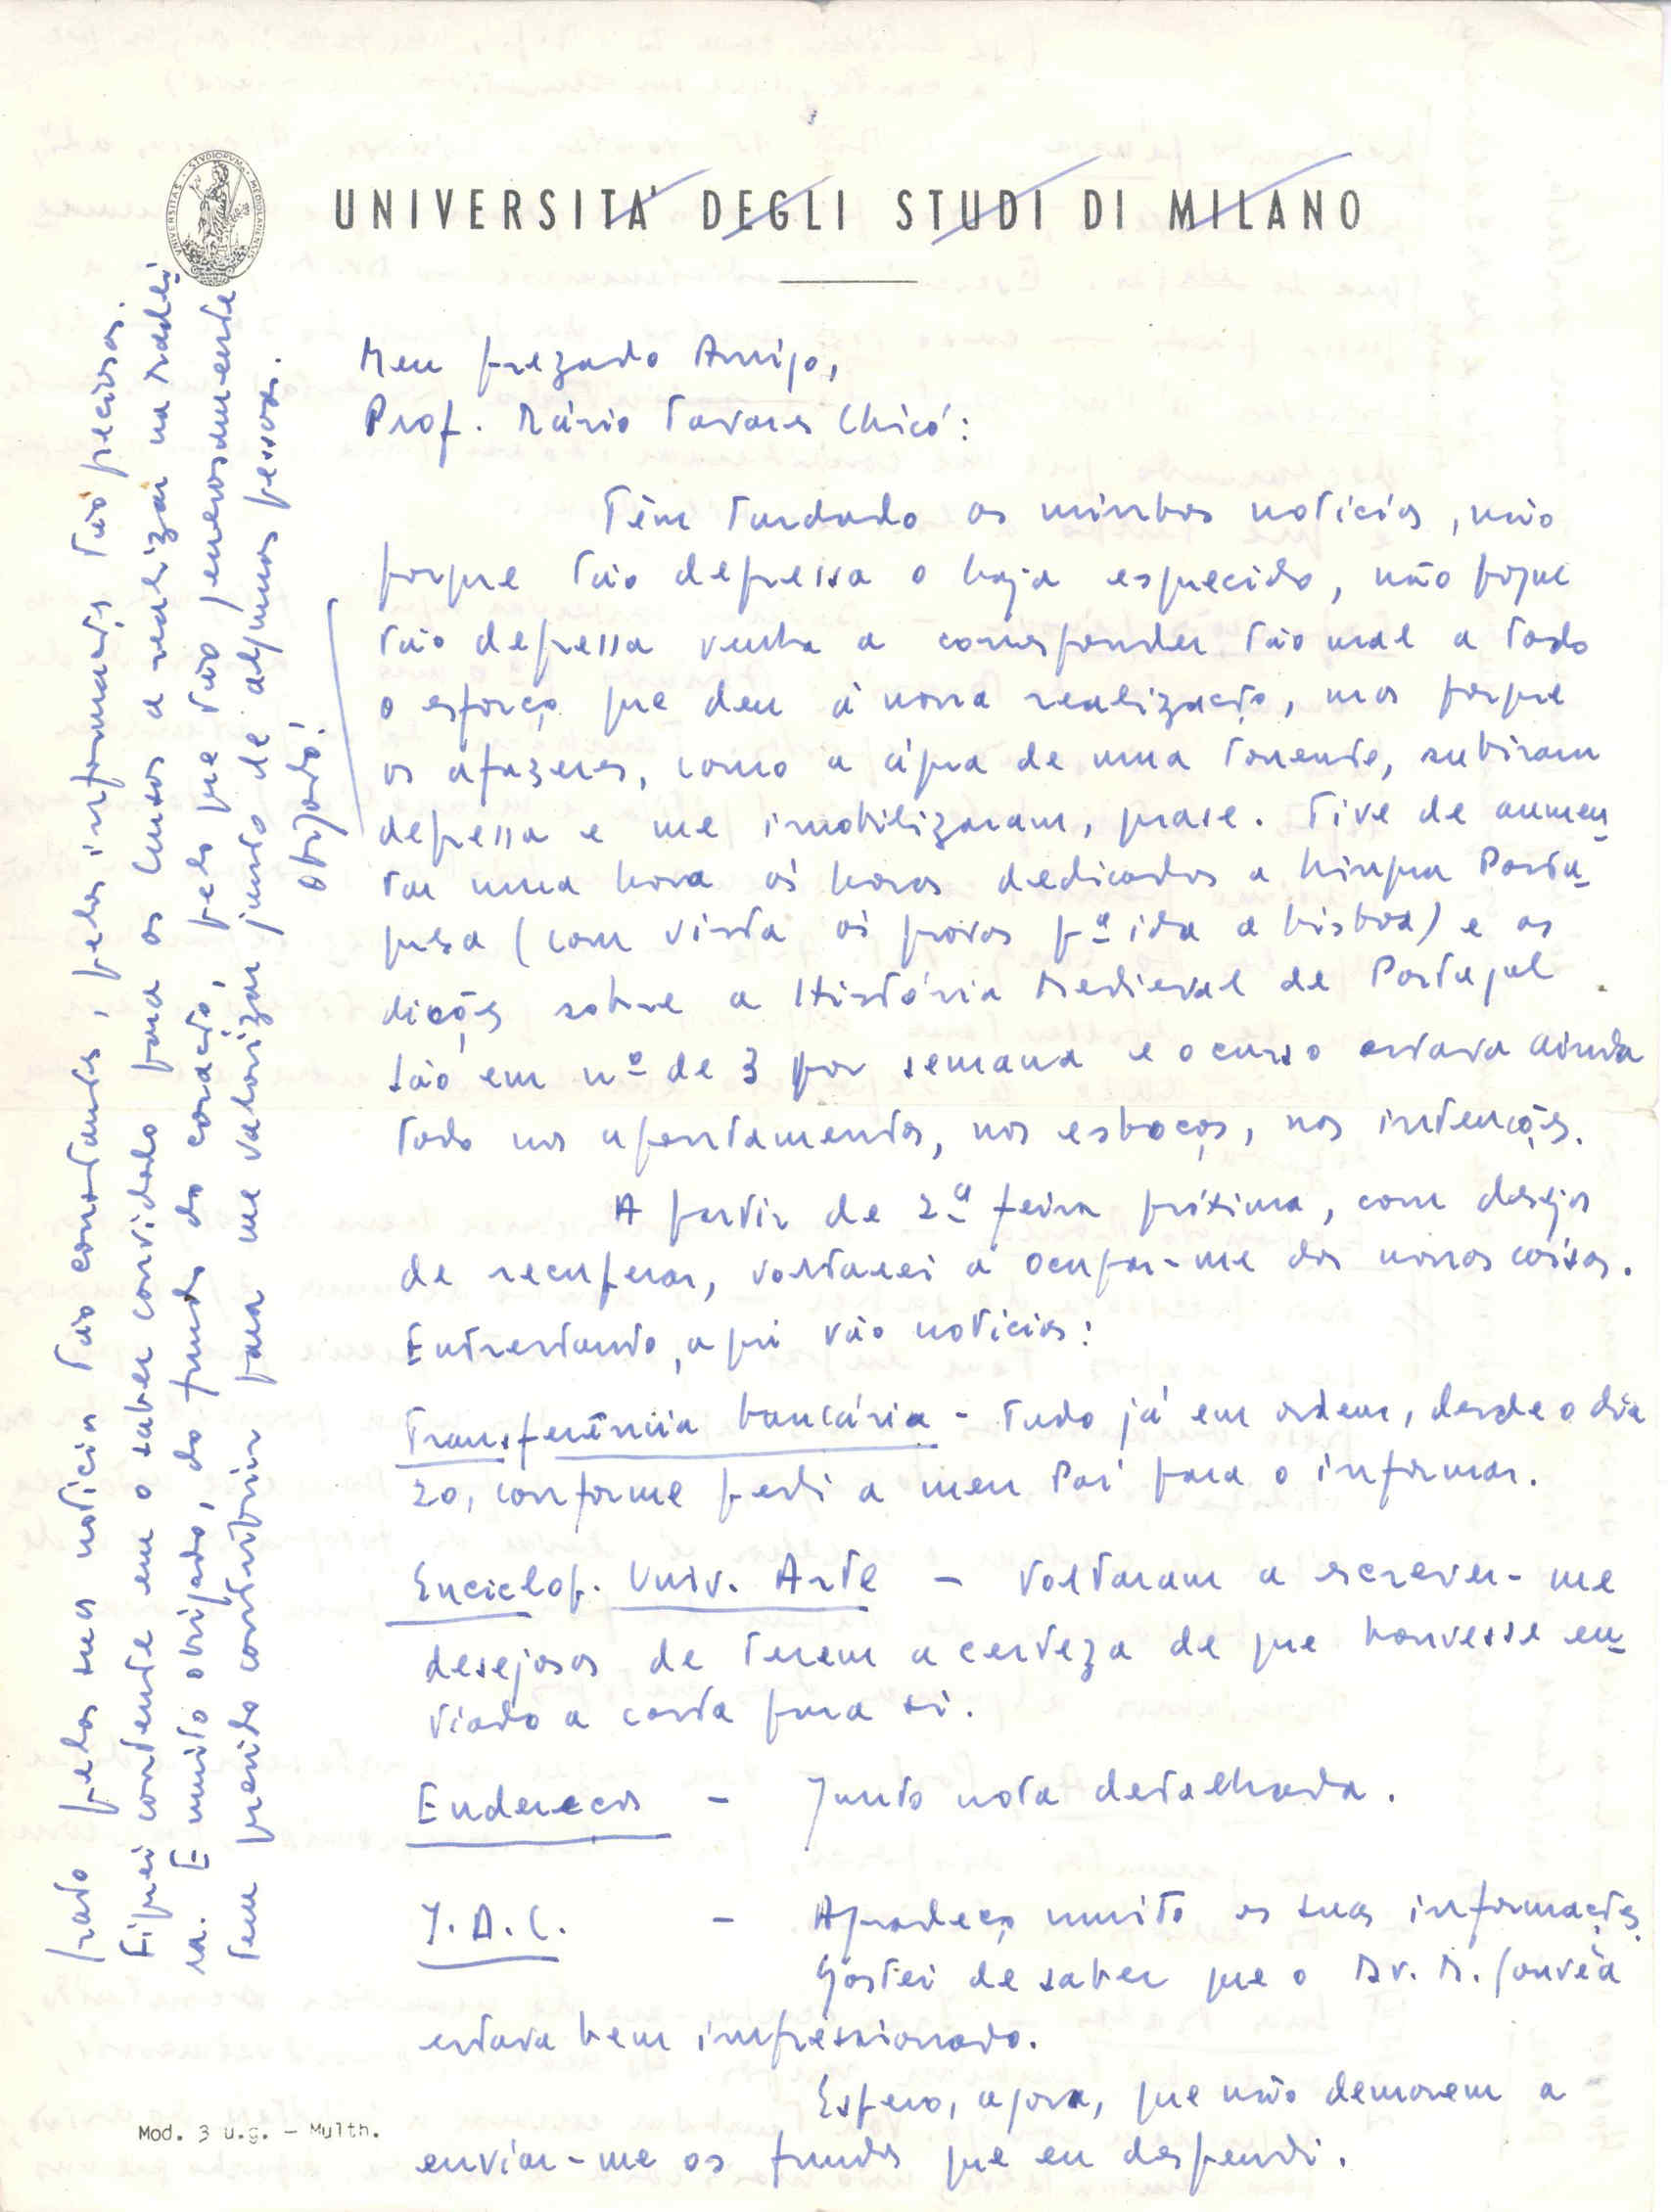 UNIVERSITA' DEGLI STUDI DI MILANO
Meu prezado Amigo,
Prof. Mário Tavares Chicó:
Têm tardado as minhas notícias, não
porque tão depressa o haja esquecido, não porque
tão depressa venha a corresponder tão mal a todo
o esforço que deu à nossa realização, mas porque
os afazeres, como a água de uma torrente, subiram
depressa e me imobilizaram, quase. Tive de aumen-
tar uma hora às horas dedicadas a Língua Portu-
guesa (com vista às provas pª ida a Lisboa) e as
lições sobre a História Medieval de Portugal
são em nº de 3 por semana e o curso estava ainda
todo nos apontamentos, nos esboços, nas intenções.
A partir de 2ª feira próxima, com desejos
de recuperar, voltarei a ocupar-me das nossas coisas.
Entretanto, aqui vão notícias:
Transferência bancária - Tudo já em ordem, desde o dia
20, conforme pedi a meu Pai para o informar.
Enciclop. Univ. Arte - Voltaram a escrever-me
desejosos de terem a certeza de que houvesse en-
viado a carta para si.
Endereços - Junto nota detalhada.
I.A.C. - Agradeço muito as suas informações.
Gostei de saber que o Dr. M. Gouvêa
estava bem impressionado.
Espero, agora, que não demorem a
enviar-me os fundos que eu despendi.
Mod. 3 u.g. – Multh.
grato pelas suas notícias tão constantes, pelas informações tão preciosas.
Fiquei contente em o saber convidado para os Cursos a realizar na Madei-
ra. E muito obrigado, do fundo do coração, pelo que tão generosamente
tem querido contribuir para me valorizar junto de algumas pessoas.
Obrigado!